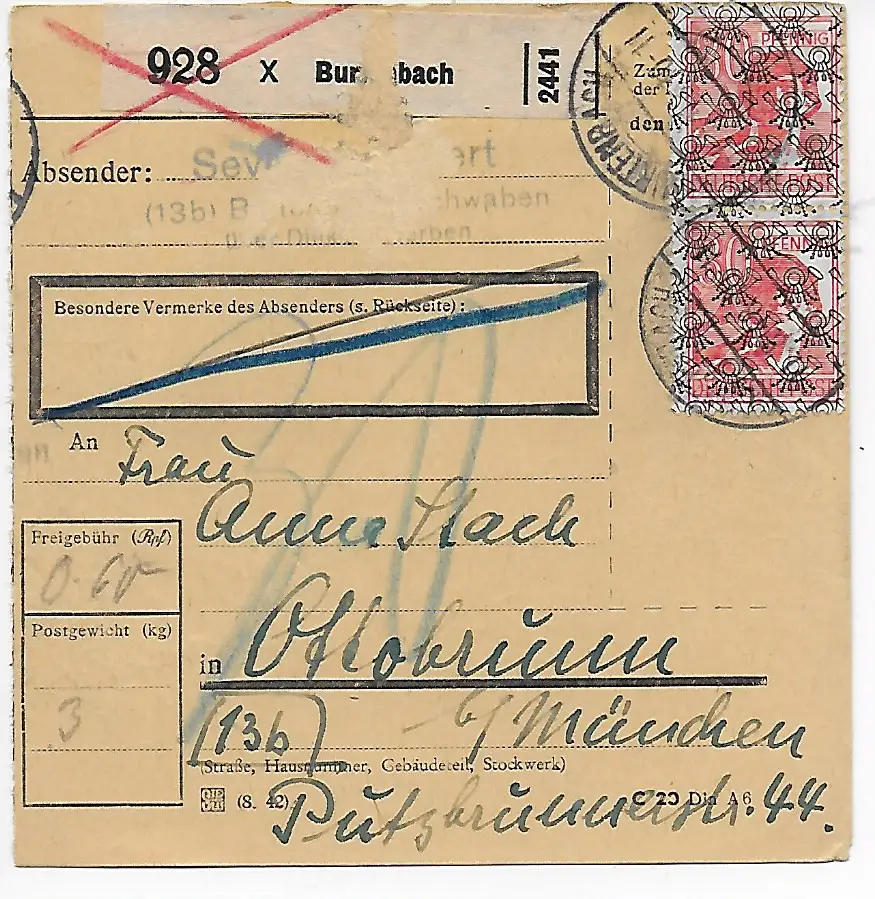 928 X Bur bach
2441
Zum
der
den
Absender:
Sev ert
(13b) B chwaben
Besondere Vermerke des Absenders (s. Rückseite):
An Frau
Anna Stach
Freigebühr (Rpf)
0.60
Postgewicht (kg)
3
30
in Ottobrunn
(13b) b/ München
(Straße, Hausnummer, Gebäudeteil, Stockwerk)
(8. 42) C 20 Din A 6
Putzbrunnerstr. 44.
PFENNIG
DEUTSCHE POST
PFENNIG
DEUTSCHE POST
BURTENBACH